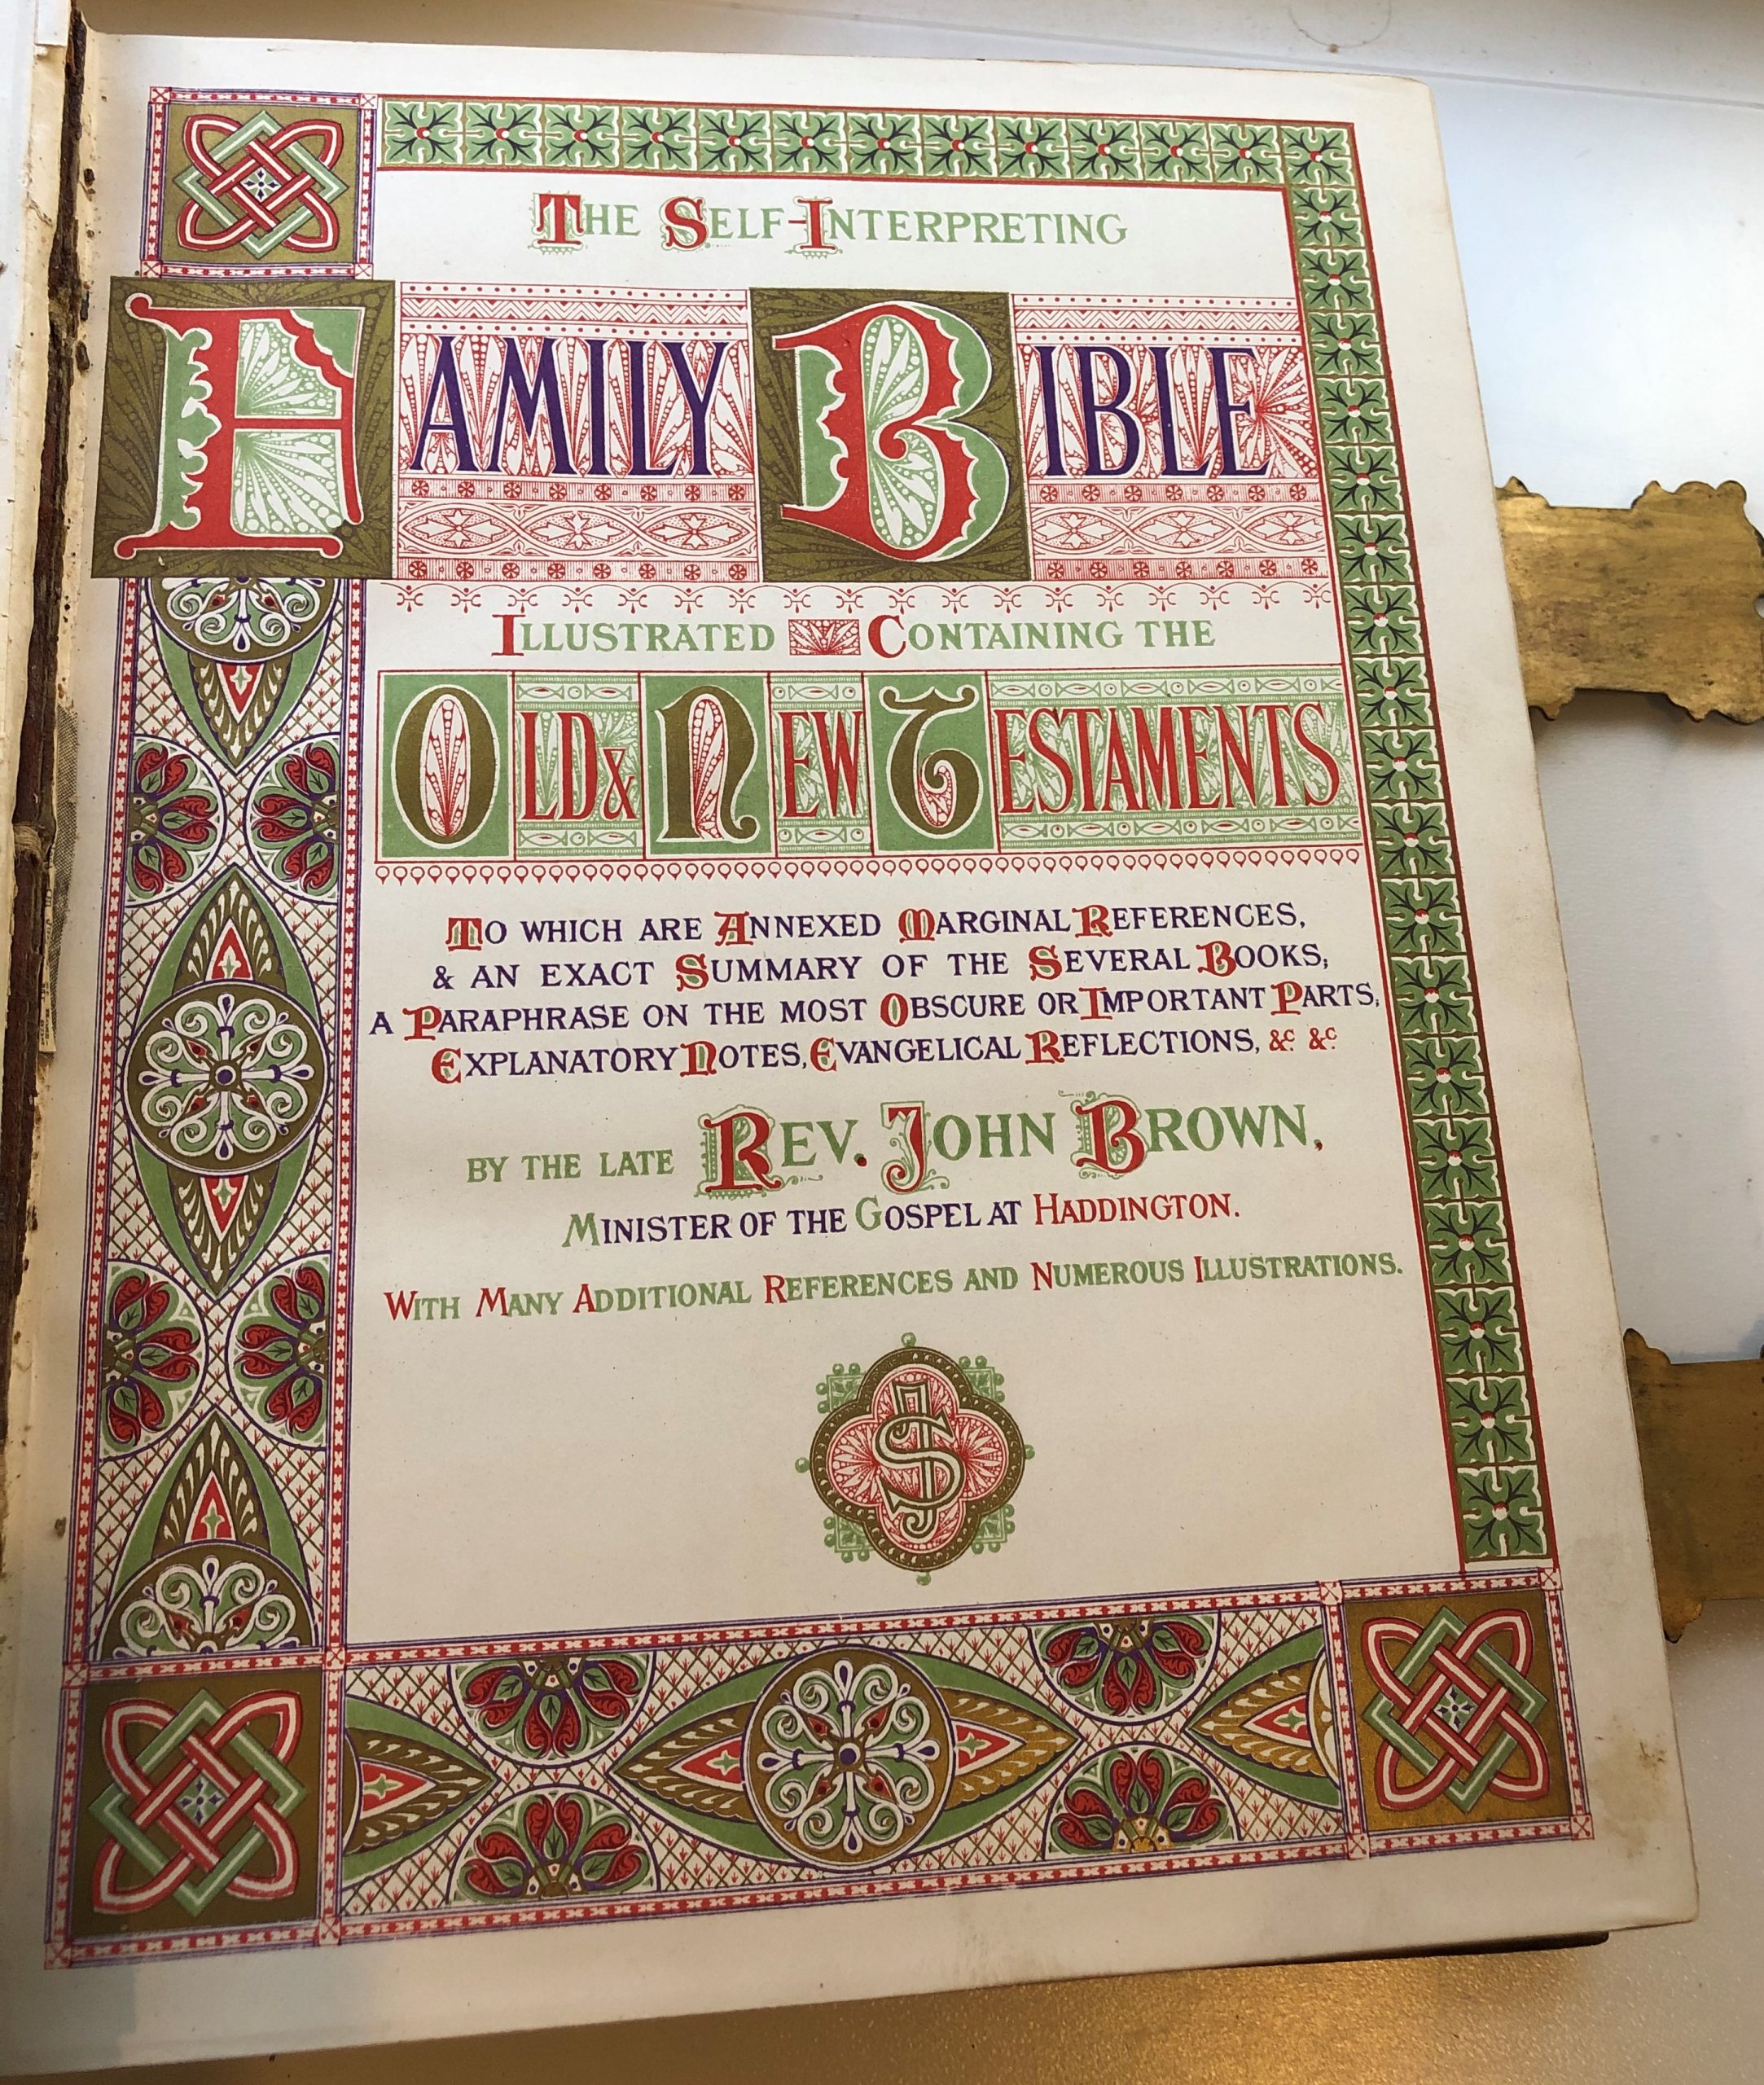 THE SELF-INTERPRETING
FAMILY BIBLE
ILLUSTRATED CONTAINING THE
OLD & NEW TESTAMENTS
TO WHICH ARE ANNEXED MARGINAL REFERENCES,
& AN EXACT SUMMARY OF THE SEVERAL BOOKS,
A PARAPHRASE ON THE MOST OBSCURE OR IMPORTANT PARTS,
EXPLANATORY NOTES, EVANGELICAL REFLECTIONS, &c &c
BY THE LATE REV. JOHN BROWN,
MINISTER OF THE GOSPEL AT HADDINGTON.
WITH MANY ADDITIONAL REFERENCES AND NUMEROUS ILLUSTRATIONS.